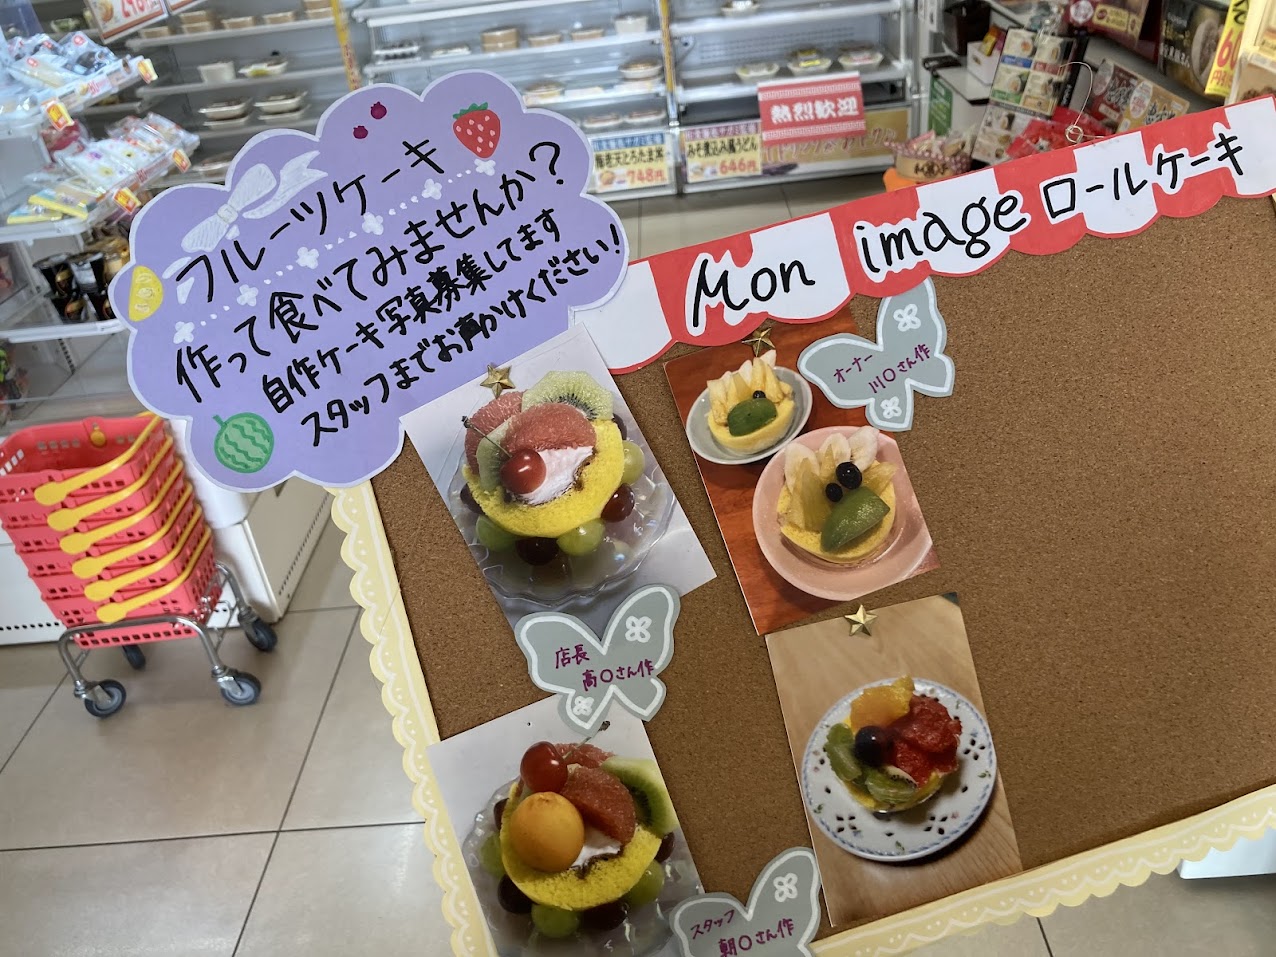 フルーツケーキ
作って食べてみませんか?
自作ケーキ写真募集してます
スタッフまでお声かけください!
Mon image ロールケーキ
オーナー
川〇さん作
店長
高〇さん作
スタッフ
朝〇さん作
熱烈歓迎
748円
みそ煮込み風うどん
646円